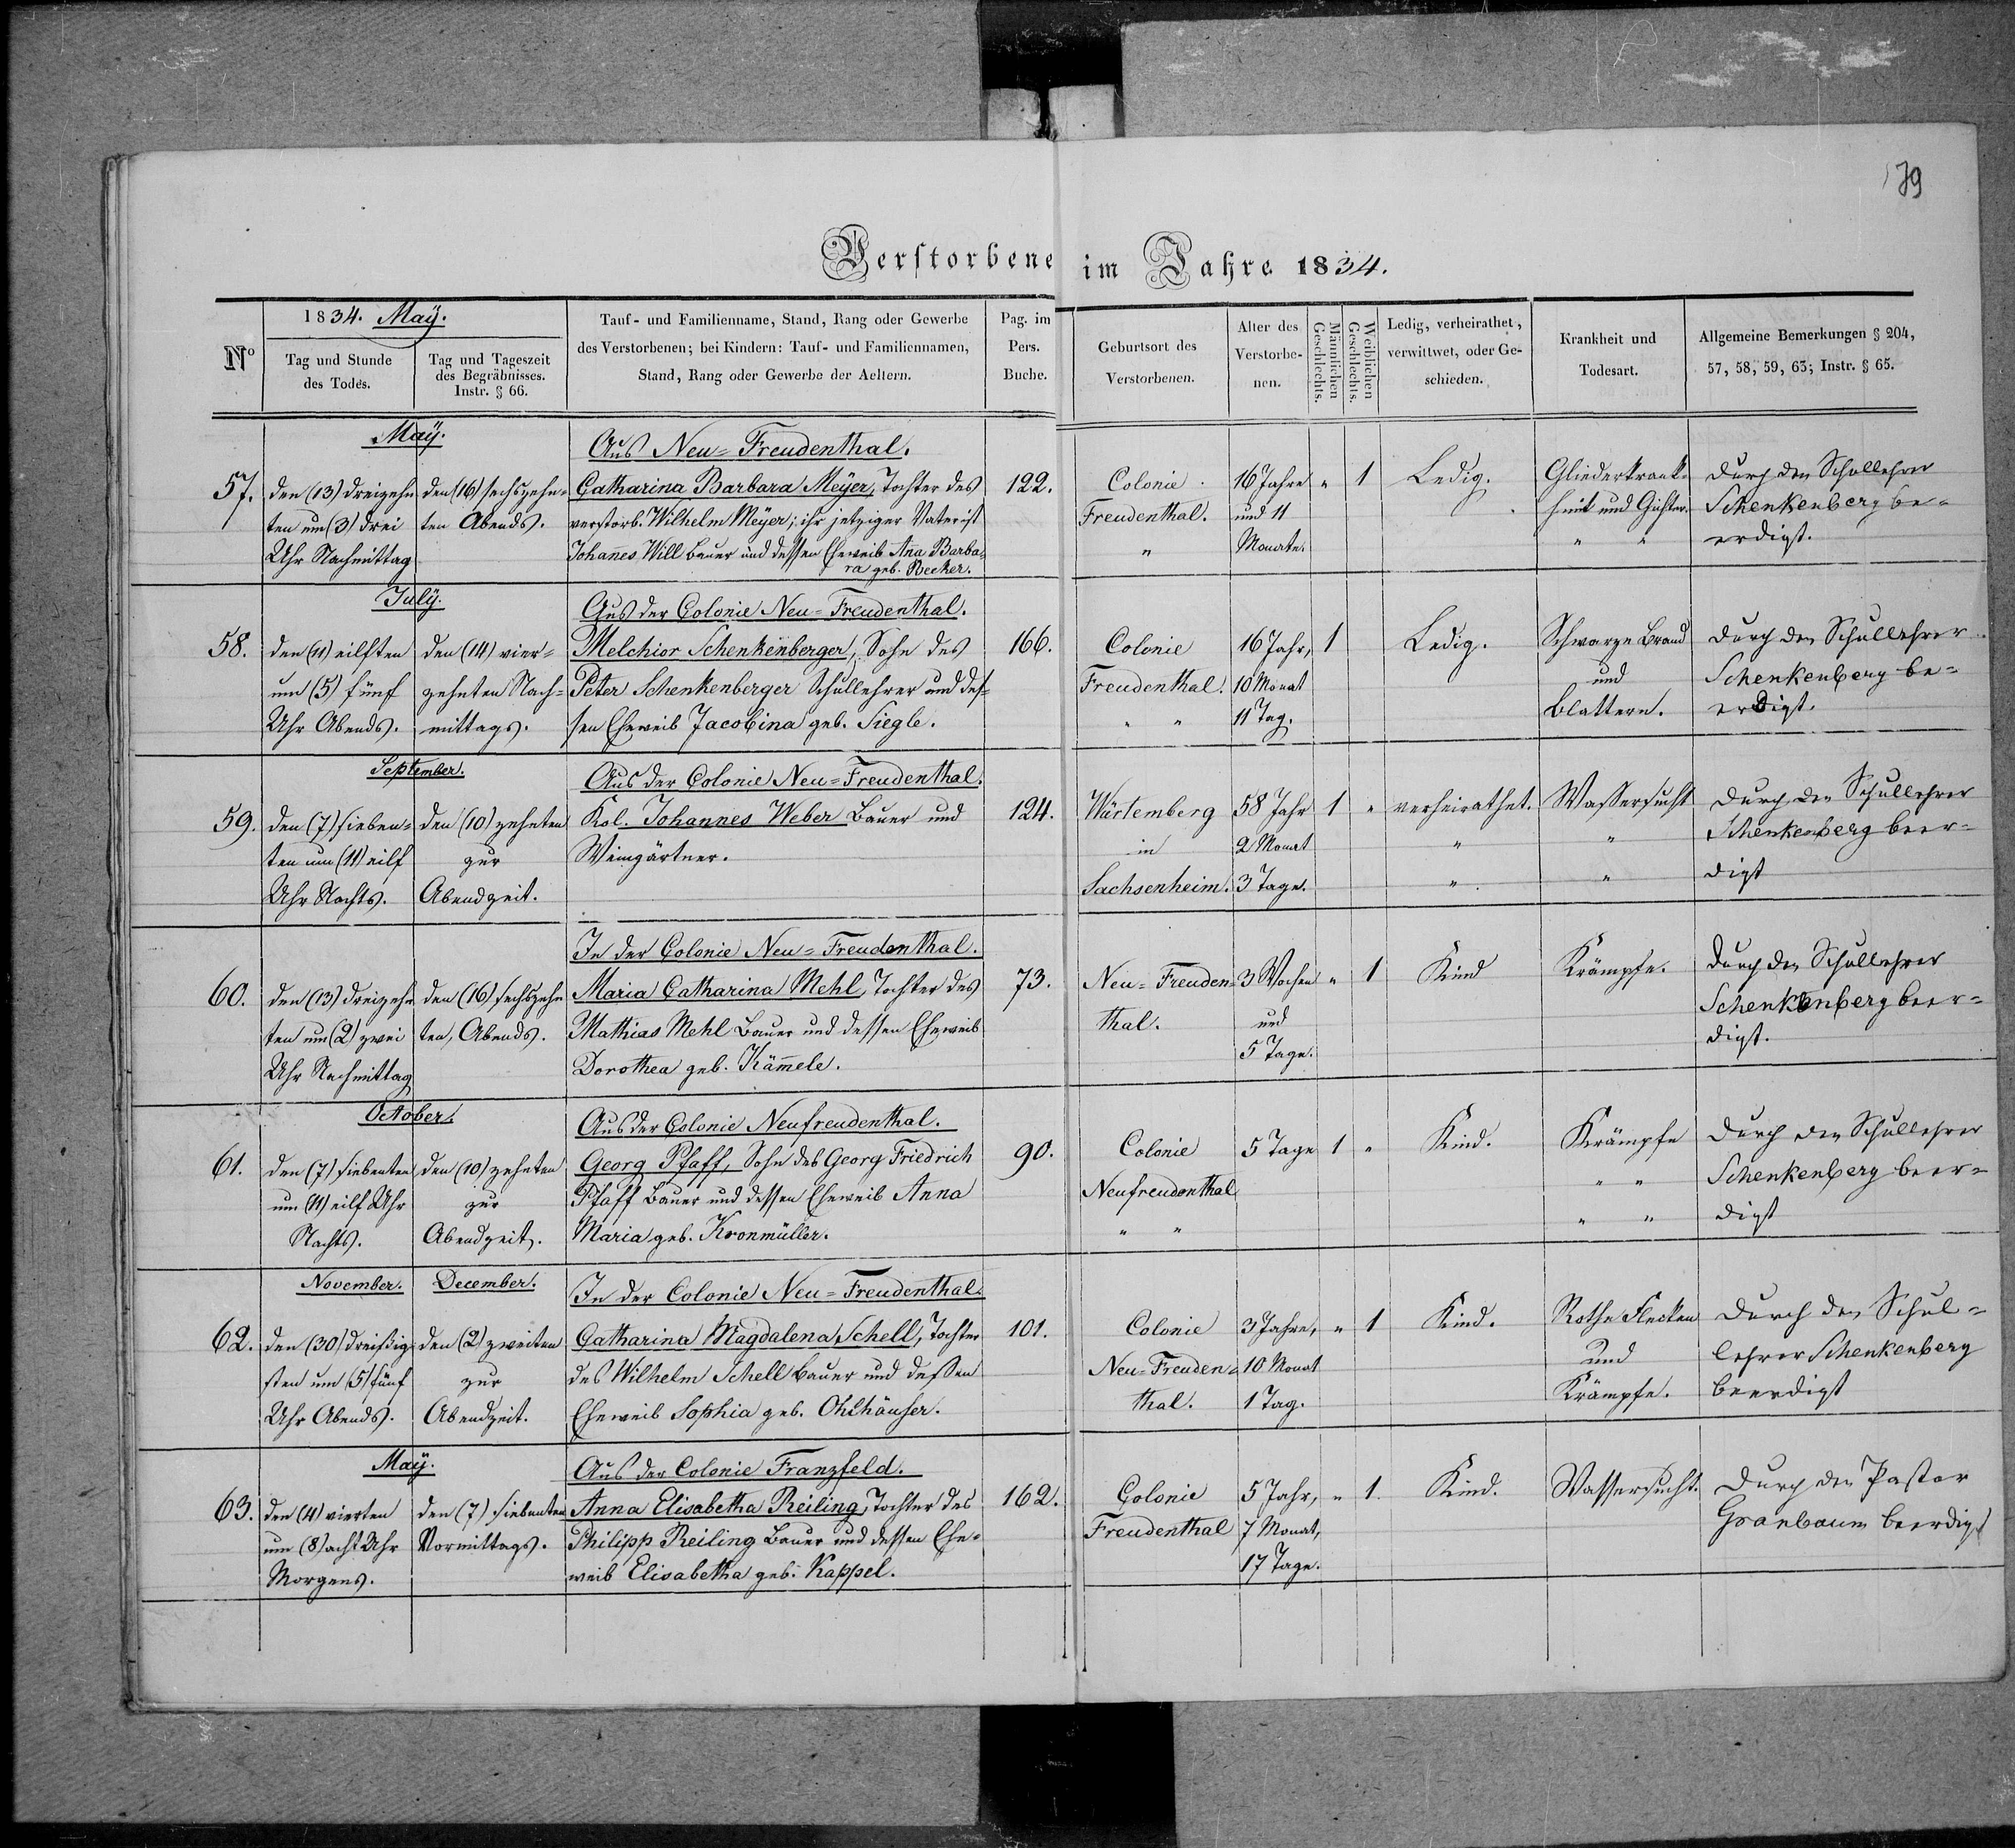 79
Verstorbene im Jahre 1834.
Nº
1834. Maÿ.
Tag und Stunde
des Todes.
Tag und Tageszeit
des Begräbnisses.
Instr. § 66.
Tauf- und Familienname, Stand, Rang oder Gewerbe
des Verstorbenen; bei Kindern: Tauf- und Familiennamen,
Stand, Rang oder Gewerbe der Aeltern.
Pag. im
Pers.
Buche.
Geburtsort des
Verstorbenen.
Alter des
Verstorbe-
nen.
Männlichen
Geschlechts.
Weiblichen
Geschlechts.
Ledig, verheirathet,
verwittwet, oder Ge-
schieden.
Krankheit und
Todesart.
Allgemeine Bemerkungen § 204,
57, 58, 59, 63; Instr. § 65.
Maÿ.
57.
den (13) dreizehn
ten um (3) drei
Uhr Nachmittag
den (16) sechszehn=
ten Abends.
Aus Neu=Freudenthal.
Catharina Barbara Meÿer, Tochter des
verstorb. Wilhelm Meÿer; ihr jetziger Vater ist
Johannes Will Bauer und dessen Eheweib Anna Barba
ra geb. Becker.
122.
Colonie
Freudenthal.
"
16 Jahre
und 11
Monate.
"
1
Ledig.
Gliederkrank=
heit und Gichter.
" "
durch den Schullehrer
Schenkenberg be=
erdigt.
Julÿ.
58.
den (11) eilften
um (5) fünf
Uhr Abends.
den (14) vier=
zehnten Nach=
mittags.
Aus der Colonie Neu=Freudenthal.
Melchior Schenkenberger, Sohn des
Peter Schenkenberger Schullehrer und des=
sen Eheweib Jacobina geb. Siegle.
166.
Colonie
Freudenthal.
" "
16 Jahr,
10 Monat
11 Tag.
1
Ledig.
Schwarze Brand
und
Blattern.
durch den Schullehrer
Schenkenberg be=
erdigt.
September.
59.
den (7) sieben=
ten um (11) eilf
Uhr Nachts.
den (10) zehnten
zur
Abendzeit.
Aus der Colonie Neu=Freudenthal.
Kol. Johannes Weber Bauer und
Weingärtner.
124.
Würtemberg
in
Sachsenheim.
58 Jahr
2 Monat
3 Tage.
1
"
verheirathet.
"
"
Wassersucht
"
"
durch den Schullehrer
Schenkenberg beer=
digt
60.
den (13) dreizehn
ten um (2) zwei
Uhr Nachmittag
den (16) sechszehn
ten, Abends.
In der Colonie Neu=Freudenthal.
Maria Catharina Mehl, Tochter des
Mathias Mehl Bauer und dessen Eheweib
Dorothea geb. Kämmele.
73.
Neu=Freuden=
thal.
3 Wochen
und
5 Tage.
"
1
Kind
Krämpfe.
durch den Schullehrer
Schenkenberg beer=
digt.
October.
61.
den (7) siebenten
um (11) eilf Uhr
Nachts.
den (10) zehnten
zur
Abendzeit.
Aus der Colonie Neufreudenthal.
Georg Pfaff, Sohn des Georg Friedrich
Pfaff Bauer und dessen Eheweib Anna
Maria geb. Kronmüller.
90.
Colonie
Neufreudenthal
" "
5 Tage
1
"
Kind.
Krämpfe
" "
" "
durch den Schullehrer
Schenkenberg beer=
digt
November.
December.
62.
den (30) dreißig
sten um (5) fünf
Uhr Abends.
den (2) zweiten
zur
Abendzeit.
In der Colonie Neu=Freudenthal.
Catharina Magdalena Schell, Tochter
des Wilhelm Schell Bauer und dessen
Eheweib Sophia geb. Ohlhäuser.
101.
Colonie
Neu=Freuden=
thal.
3 Jahre,
10 Monat
1 Tag.
"
1
Kind.
Rothe Flecken
und
Krämpfe.
durch den Schul=
lehrer Schenkenberg
beerdigt
Maÿ.
63.
den (4) vierten
um (8) acht Uhr
Morgens.
den (7) siebenten
Vormittags.
Aus der Colonie Franzfeld.
Anna Elisabetha Reiling, Tochter des
Philipp Reiling Bauer und dessen Ehe=
weib Elisabetha geb. Kappel.
162.
Colonie
Freudenthal
5 Jahr,
7 Monat,
17 Tage.
"
1.
Kind.
Wassersucht.
durch den Pastor
Granbaum beerdigt